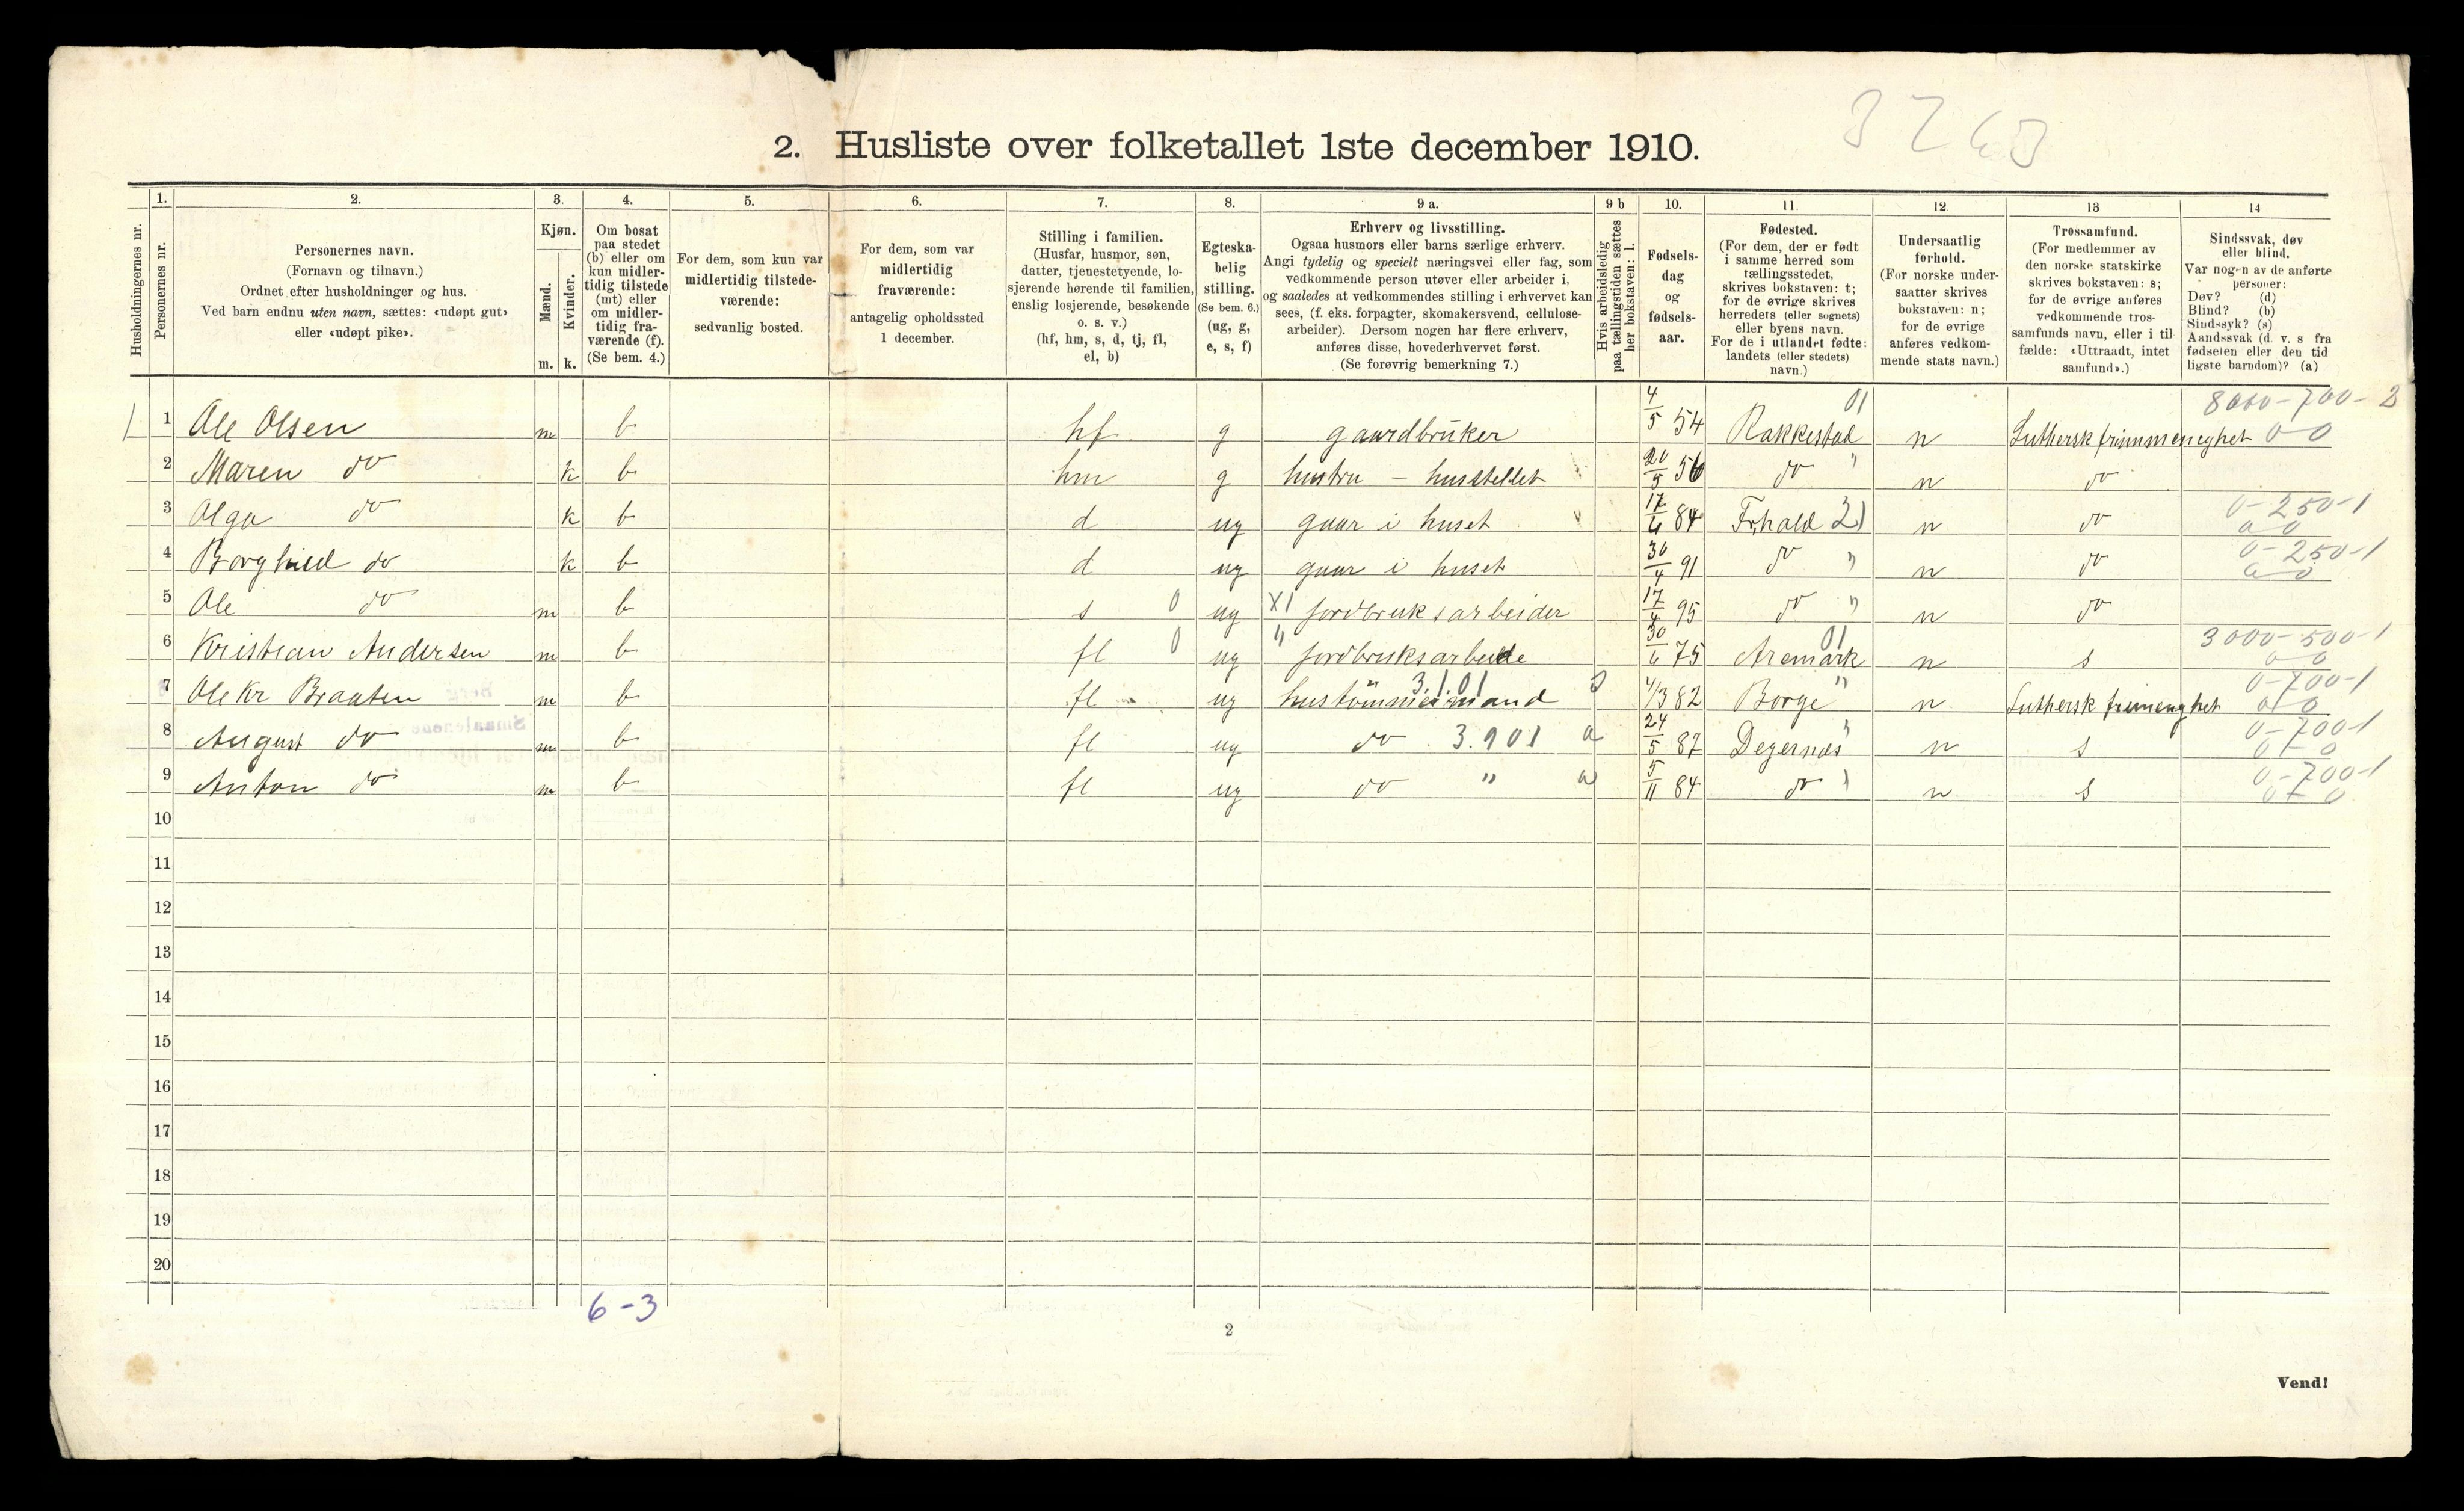 3263
2. Husliste over folketallet 1ste december 1910.
1. 2. 3. 4. 5. 6. 7. 8. 9 a. 9 b 10. 11. 12. 13 14
Husholdningernes nr.
Personernes nr.
Personernes navn.
(Fornavn og tilnavn.)
Ordnet efter husholdninger og hus.
Ved barn endnu uten navn, sættes: «udøpt gut»
eller «udøpt pike».
Kjøn.
Mænd.
Kvinder.
m. k.
Om bosat
paa stedet
(b) eller om
kun midler-
tidig tilstede
(mt) eller
om midler-
tidig fra-
værende (f).
(Se bem. 4.)
For dem, som kun var
midlertidig tilstede-
værende:
sedvanlig bosted.
For dem, som var
midlertidig
fraværende:
antagelig opholdssted
1 december.
Stilling i familien.
(Husfar, husmor, søn,
datter, tjenestetyende, lo-
sjerende hørende til familien,
enslig losjerende, besøkende
o. s. v.)
(hf, hm, s, d, tj, fl,
el, b)
Egteska-
belig
stilling.
(Se bem. 6.)
(ug, g,
e, s, f)
Erhverv og livsstilling.
Ogsaa husmors eller barns særlige erhverv.
Angi tydelig og specielt næringsvei eller fag, som
vedkommende person utøver eller arbeider i,
og saaledes at vedkommendes stilling i erhvervet kan
sees, (f. eks. forpagter, skomakersvend, cellulose-
arbeider). Dersom nogen har flere erhverv,
anføres disse, hovederhvervet først.
(Se forøvrig bemerkning 7.)
Hvis arbeidsledig
paa tællingstiden sættes
her bokstaven: l.
Fødsels-
dag
og
fødsels-
aar.
Fødested.
(For dem, der er født
i samme herred som
tællingsstedet,
skrives bokstaven: t;
for de øvrige skrives
herredets (eller sognets)
eller byens navn.
For de i utlandet fødte:
landets (eller stedets)
navn.)
Undersaatlig
forhold.
(For norske under-
saatter skrives
bokstaven: n;
for de øvrige
anføres vedkom-
mende stats navn.)
Trossamfund.
(For medlemmer av
den norske statskirke
skrives bokstaven: s;
for de øvrige anføres
vedkommende tros-
samfunds navn, eller i til
fælde: «Uttraadt, intet
samfund».)
Sindssvak, døv
eller blind.
Var nogen av de anførte
personer:
Døv? (d)
Blind? (b)
Sindssyk? (s)
Aandssvak (d. v. s fra
fødselen eller den tid
ligste barndom)? (a)
01 8000-700-2
1 1 Ole Olsen m b hf g gaardbruker 4/5 54 Rakkestad n Luthersk frimmeneghet 0 0
2 Maren do k b hm g hustru – husstellet 20/5 56 do " n do
0-250-1
3 Olga do k b d ug gaar i huset 17/6 84 Frhald 21 n do 0 0
0-250-1
4 Borghild do k b d ug gaar i huset 30/4 91 do " n do 0 0
5 Ole do m b s 0 ug X1 jordbruksarbeider 17/4 95 do " n do
01 3000-500-1
6 Kristian Andersen m b fl 0 ug " jordbruksarbeide 30/6 75 Aremark n s 0 0
3.1.01 0-700-1
7 Ole Kr Braaten m b fl ug hustømmermand 4/3 82 Borge " n Luthersk frimenghet 0 0
0-700-1
8 August do m b fl ug do 3.901 a 24/5 87 Degernes " n s 0 0
0-700-1
9 Anton do m b fl ug do " a 5/11 84 do " n s 0 0
10
11
12
13
14
15
16
17
18
19
20
6-3
2
Vend!